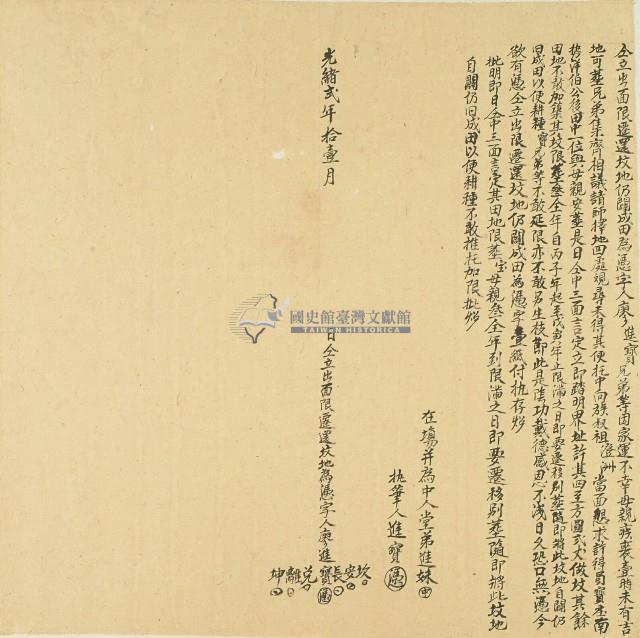 仝立出面限遷還坟地仍開成田為憑字人廖進寶兄弟等因家運不幸母親疾喪壹時未有吉
地可塟兄弟集齊相議請師擇地四處覔尋未得其便托中向族叔祖登洲當面懇求許得
伯公後田中一位與母親安塟是日仝中三面言定立即踏明界址許其四至方圓弍丈做坟其餘
田地不敢加築其坟限塟叁全年自丙子年起至戊寅年止限滿之日即要遷移別塟隨即將此坟地自開仍
旧成田以便耕種寶兄弟等不敢延限亦不敢另生枝節此是陰功戴德感恩不浅日久恐口無憑今
欲有憑仝立出限遷還坟地仍開成田為憑字壹紙付执存炤
批明即日仝中三面言定其田地限塟寶母親叁全年到限滿之日即要遷移別塟隨即將此坟地
自開仍旧成田以便耕種不敢推托加限批炤
在塲并為中人堂弟進妹
执筆人進寶
光緒弍年拾壹月
日仝立出面限遷還坟地為憑字人廖進寶
坎
安
長
兌
離
坤
國史館臺灣文獻館
TAIWAN HISTORICA